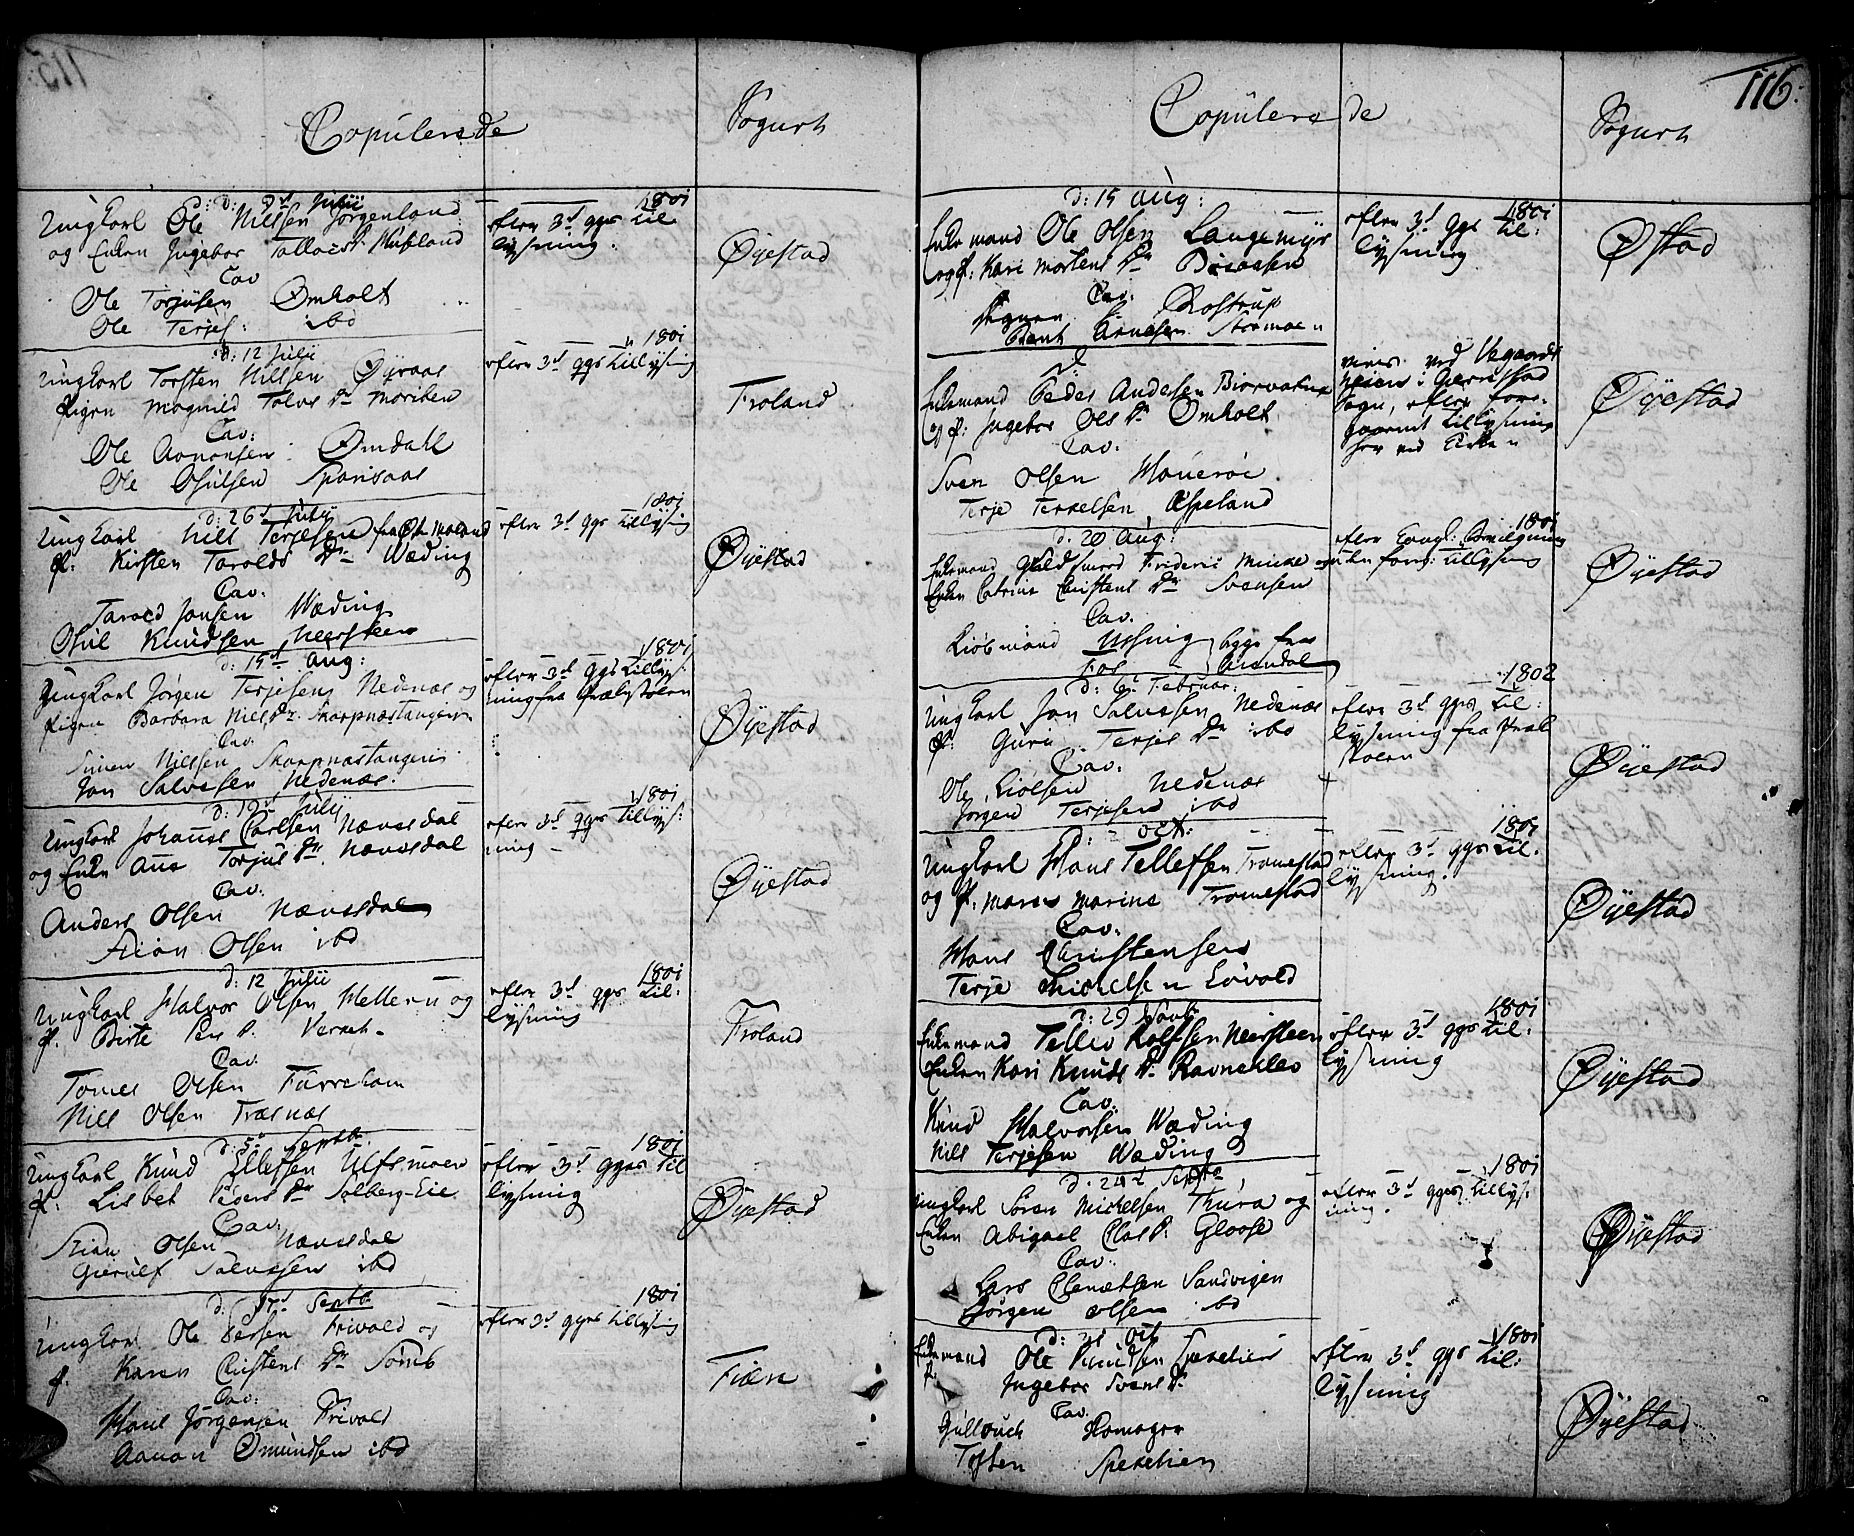 Copulerede
Sogneth
d: 5d Julii
1801
Ungkarl Ole Nilssen Jørgenland
og Enken Ingebor Tollacsd.
Cav
Ole Torjusen Omholt
Ole Terjes: ibd
efter 3d ggs til
lysning:
Øyestad
d: 12 Julii
1801
Ungkarl Torsten Nilssen Øyraas
Pigen Magnild Tolvs Dr
Cav:
Ole Aanonsen Omdahl
Ole Osulsen Sparsaas
efter 3d ggs tillysning
Froland
d: 26d Julii
1801
Ungkarl Nils Terjesen fra Øst Moland
P. Kirsten Tarolds Dr Wæding
Cav:
Tarold Jonsen Wæding
Osul Knudsen Neersteen
efter 3d ggs tillysning
Øyestad
d: 15d Aug:
1801
Ungkarl Jørgen Terjesen Nedenæs og
Pigen Barbara Niels Dr. Skarpnæstangen
Cav
Simen Nilssen Skarpnæstangen
Jon Salvessen Nedenæs.
efter 3d ggs tillys:
ning fra Prækestolen
Øyestad
d: 19d Julii
1801
Ungkarl Johannes Carlsen Nævesdal
og Enken Anne Torjus Dr. Nævesdal
Cav:
Anders Olsen Nævesdal
Stian Olsen ibd
efter 3d ggs tillys:
ning
Øyestad
d: 12 Julii
1801
Ungkarl Halvor Olsen Messeru og
P. Birte Pers D.
Cav
Tomes Olsen Furreholm
Nils Olsen Træsnæs
efter 3d ggs til:
lysning
Froland
d: 5. Septb.
1801
Ungkarl Knud Ellefsen Ulfsmoen
P. Lisbet Peders Dr Solberg-Eie
Cav:
Stian Olsen Nævesdal
Gierulf Salvessen ibd
efter 3d ggs til
lysning
Øyestad
d: 17d Septb.
1801
Ungkarl Ole Persen Frivold og
P. Karen Christens Dr Sømb
Cav:
Hans Jørgensen Frivold
Aanon Omundsen ibd
efter 3d ggs tillysning
Fiære
116:
Copulerede
Sogneth
d: 15 Aug:
1801
Enkemand Ole Olsen Langemyr
og P: Kari Mortens Dr Braassen
Cav:
Rostrup
Bent Arnesen Stoermoen
efter 3d ggs til:
lysning
Østad
Enkemand Peder Andersen Biorvatne
og P: Ingebor Ols Dr Omholt
Cav:
Sven Olsen Haverøe
Terje Terkelsen Espeland
viet ved Vegaards
heien i Gierrestad
Sogn, efter fore-
gaaende tillysning
her ved Kirken
Øyestad
d: 20 Aug:
1801
Enkemand Guldsmed Frideric Meinke og
Enken Catrine Christens Dr Svensen
Cav:
Kiøbmand Ussing
Fos
begge fra
Arendal
efter Kongl: Bevilgning
uden foreg: tillysning
Øyestad
d: 6d Februar:
1802
Ungkarl Jon Salvessen Nedenæs
P: Guri Terjes Dr ibd
Cav:
Ole Kiølsen Nedenæs
Jørgen Terjesen ibd
efter 3d ggs til:
lysning fra Præk
stolen
Øyestad
d: 2 Oct.
1801
Ungkarl Hans Tellefsen Tromestad
og P. Maren Marine Tromestad
Cav:
Hans Christensen
Terje Michelsen Løvold
efter 3d ggs til.
lysning.
Øyestad
d: 29 Novb.
1801
Enkemand Tellev Rolfsen Neersteen
Enken Kari Knuds Dr Ravneklev
Cav:
Knud Halvorsen Wæding
Nils Terjesen Wæding
efter 3d ggs til:
lysning
Øyestad
d: 24d Septb
1801
Ungkarl Søren Michelsen Thura og
Enken Abigael Clas D. Gloose
Cav:
Lars Clemetsen Sandvigen
Jørgen Olsen ibd
efter 3d ggs tillys:
ning.
Øyestad
d: 31 Oct
1801
Enkemand Ole Knudsen Spedalen
P. Ingebor Svens Dr
Cav.
Gullouch Homager
Tosten
efter 3d ggs til:
lysning
Øyestad